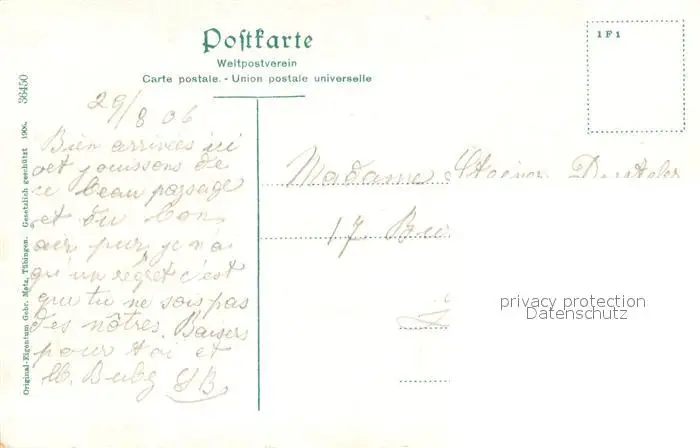 Postkarte
Weltpostverein
Carte postale. - Union postale universelle
1F1
36450
Original-Eigentum Gebr. Metz, Tübingen. Gesetzlich geschützt 1906.
29/8 06
Bien arrivées ici
et jouissons de
ce beau paysage
et du bon
air pur, je n'ai
qu'un regret c'est
que tu ne sois pas
des nôtres. Baisers
pour toi et
SB
Madame
17
privacy protection
Datenschutz